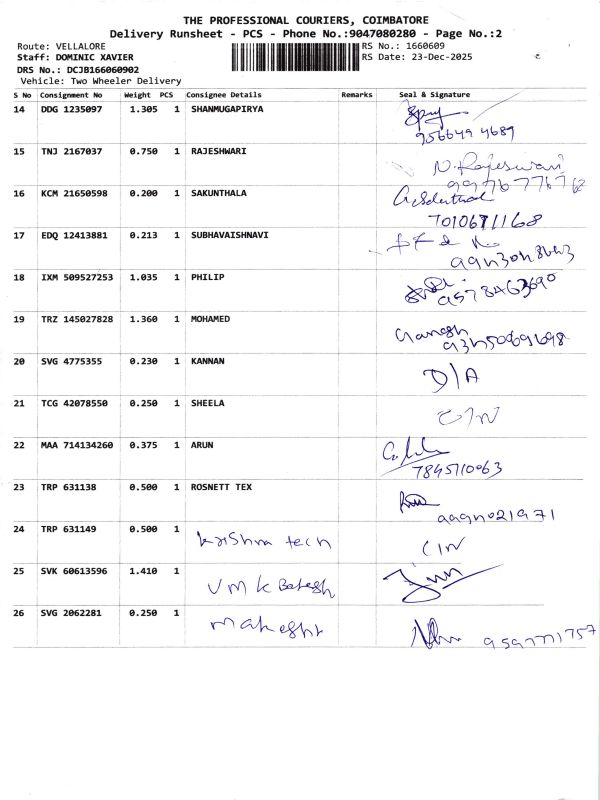 THE PROFESSIONAL COURIERS, COIMBATORE
Delivery Runsheet - PCS - Phone No.:9047080280 - Page No.:2
Route: VELLALORE RS No.: 1660609
Staff: DOMINIC XAVIER RS Date: 23-Dec-2025
DRS No.: DCJB166060902
Vehicle: Two Wheeler Delivery
S No Consignment No Weight PCS Consignee Details Remarks Seal & Signature
14 DDG 1235097 1.305 1 SHANMUGAPIRYA
956649 4689
15 TNJ 2167037 0.750 1 RAJESHWARI
N. Rajeswari
16 KCM 21650598 0.200 1 SAKUNTHALA
7010671168
17 EDQ 12413881 0.213 1 SUBHAVAISHNAVI
18 IXM 509527253 1.035 1 PHILIP
9578463690
19 TRZ 145027828 1.360 1 MOHAMED
Ganesh
20 SVG 4775355 0.230 1 KANNAN
D/A
21 TCG 42078550 0.250 1 SHEELA
C/N
22 MAA 714134260 0.375 1 ARUN
7845710063
23 TRP 631138 0.500 1 ROSNETT TEX
24 TRP 631149 0.500 1 krishna tech
25 SVK 60613596 1.410 1 VMK
26 SVG 2062281 0.250 1
9597771757